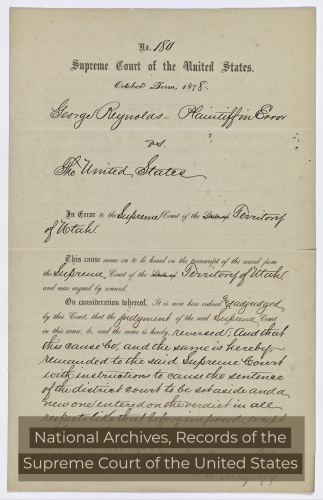 No. 180
Supreme Court of the United States.
October Term, 1878.
George Reynolds - Plaintiff in Error
vs.
The United States
In Error to the Supreme Court of the Territory
of Utah.
This cause came on to be heard on the transcript of the record from
the Supreme Court of the Territory of Utah.
and was argued by counsel.
On consideration whereof, It is now here ordered & adjudged
by this Court, that the judgment of the said Supreme Court
in this cause, be, and the same is hereby, reversed; And that
this cause be, and the same is hereby
remanded to the said Supreme Court
with instructions to cause the sentence
of the district court to be set aside and a
new one entered on the verdict in all
respects like that before imposed, except
National Archives, Records of the
Supreme Court of the United States